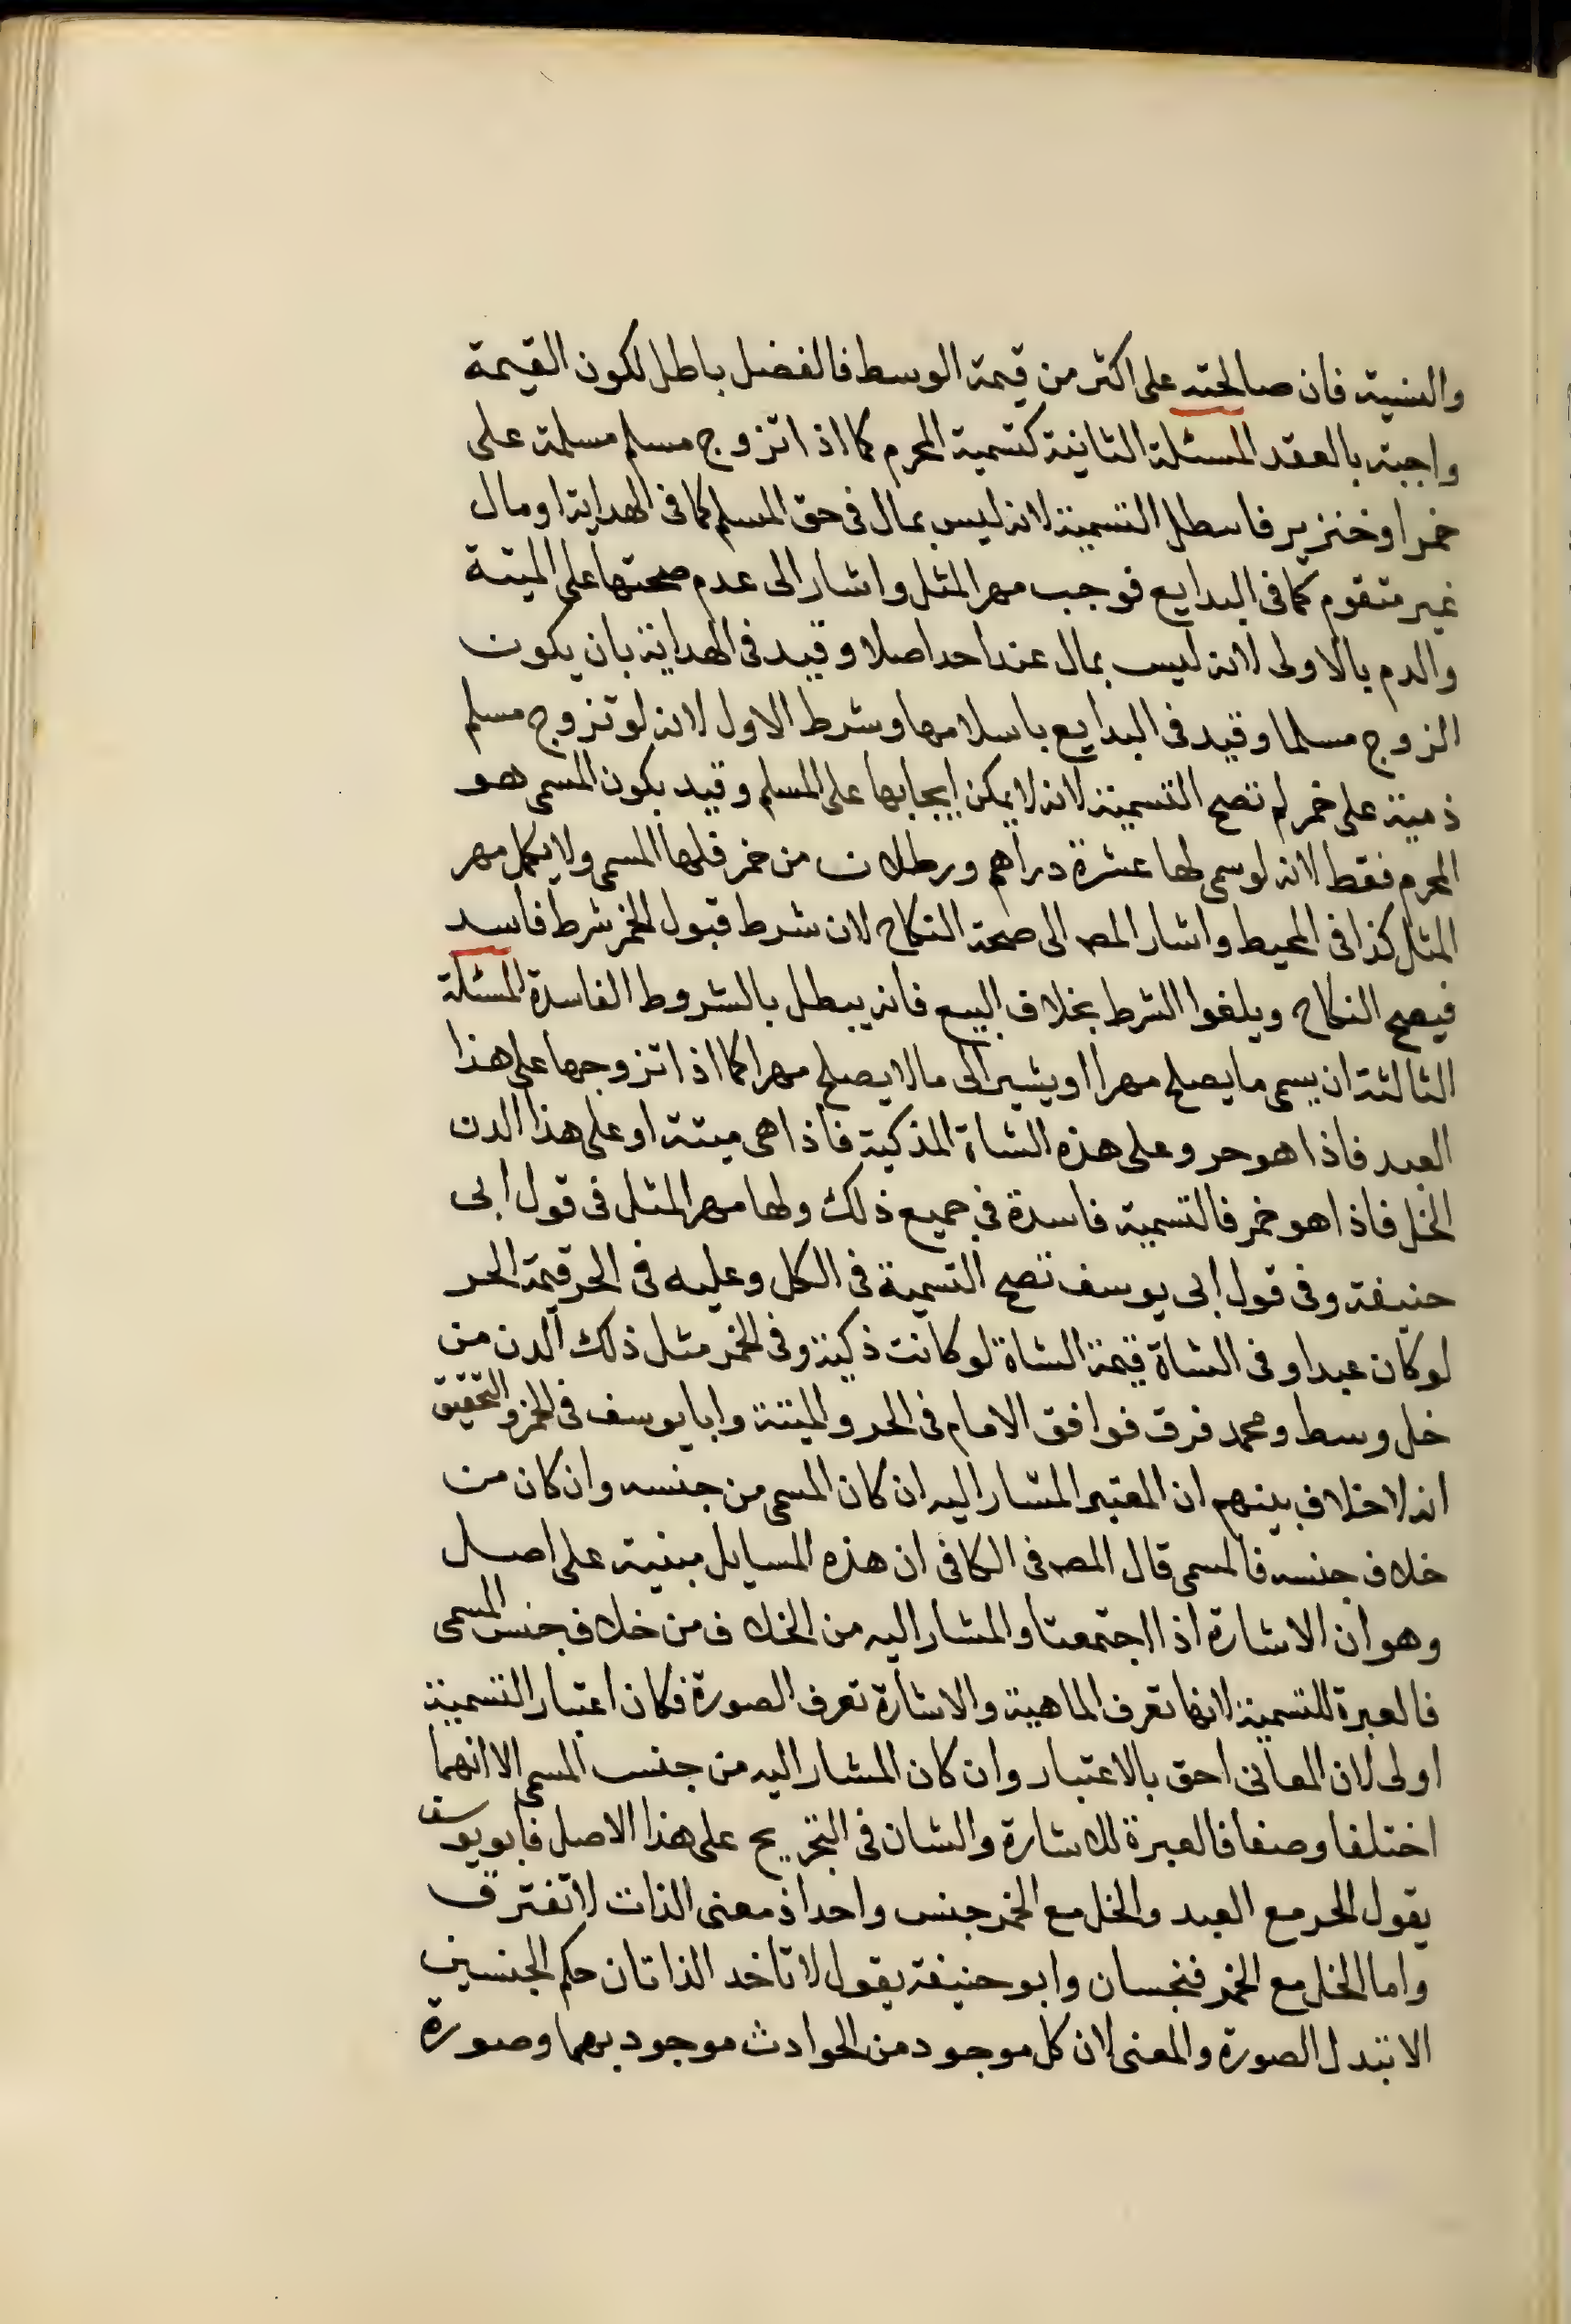 والنسية فان صالحته على اكثر من قيمة الوسط فالفضل باطل لكون القيمة
واجبة بالعقد المسئلة الثانية كتسمية المحرم كما اذا تزوج مسلم مسلمة على
خمر او خنزير فابطل التسمية لانه ليس بمال فى حق المسلم كما فى الهداية او مال
غير متقوم كما فى البدايع فوجب مهر المثل واشار الى عدم صحتها على الميتة
والدم بالاولى لانه ليس بمال عند احد اصلا وقيد فى الهداية بان يكون
الزوج مسلما وقيد فى البدايع باسلامها وشرط الاول لانه لو تزوج مسلم
ذمية على خمر لم تصح التسمية لانه لا يمكن ايجابها على المسلم وقيد بكون المسمى هو
المحرم فقط لانه لو سمى لها عشرة دراهم ورطلان من خمر فلها المسمى ولا يكمل مهر
المثل كذا فى المحيط واشار المصـ الى صحة النكاح لان شرط قبول الخمر شرط فاسد
فيصح النكاح ويلغوا الشرط بخلاف البيع فانه يبطل بالشروط الفاسدة المسئلة
الثالثة ان يسمى ما يصلح مهرا او يشير الى ما لا يصلح مهرا كما اذا تزوجها على هذا
العبد فاذا هو حر وعلى هذه الشاة المذكية فاذا هى ميتة او على هذا الدن
الخل فاذا هو خمر فالتسمية فاسدة فى جميع ذلك ولها مهر المثل فى قول ابى
حنيفة وفى قول ابى يوسف تصح التسمية فى الكل وعليه فى الحر قيمة الحر
لو كان عبدا وفى الشاة قيمة الشاة لو كانت ذكية وفى الخمر مثل ذلك الدن من
خل وسط ومحمد فرق فوافق الامام فى الحر والميتة وابا يوسف فى الخمر والتحقيق
انه لا خلاف بينهم ان المعتبر المشار اليه ان كان المسمى من جنسه وان كان من
خلاف جنسه فالمسمى قال المصـ فى الكافى ان هذه المسايل مبنية على اصل
وهو ان الاشارة اذا اجتمعتا والمشار اليه من الخلاف من خلاف جنس المسمى
فالعبرة للتسمية لانها تعرف الماهية والاشارة تعرف الصورة فكان اعتبار التسمية
اولى لان المعانى احق بالاعتبار وان كان المشار اليه من جنس المسمى الا انهما
اختلفا وصفا فالعبرة للاشارة والشان فى التخريج على هذا الاصل فابو يوسف
يقول الحر مع العبد والخل مع الخمر جنس واحد اذ معنى الذات لا تفترق
واما الخل مع الخمر فجنسان وابو حنيفة يقول لا تاخد الذاتان حكم الجنسين
الا بتبدل الصورة والمعنى لان كل موجود من الحوادث موجود بهما وصورة